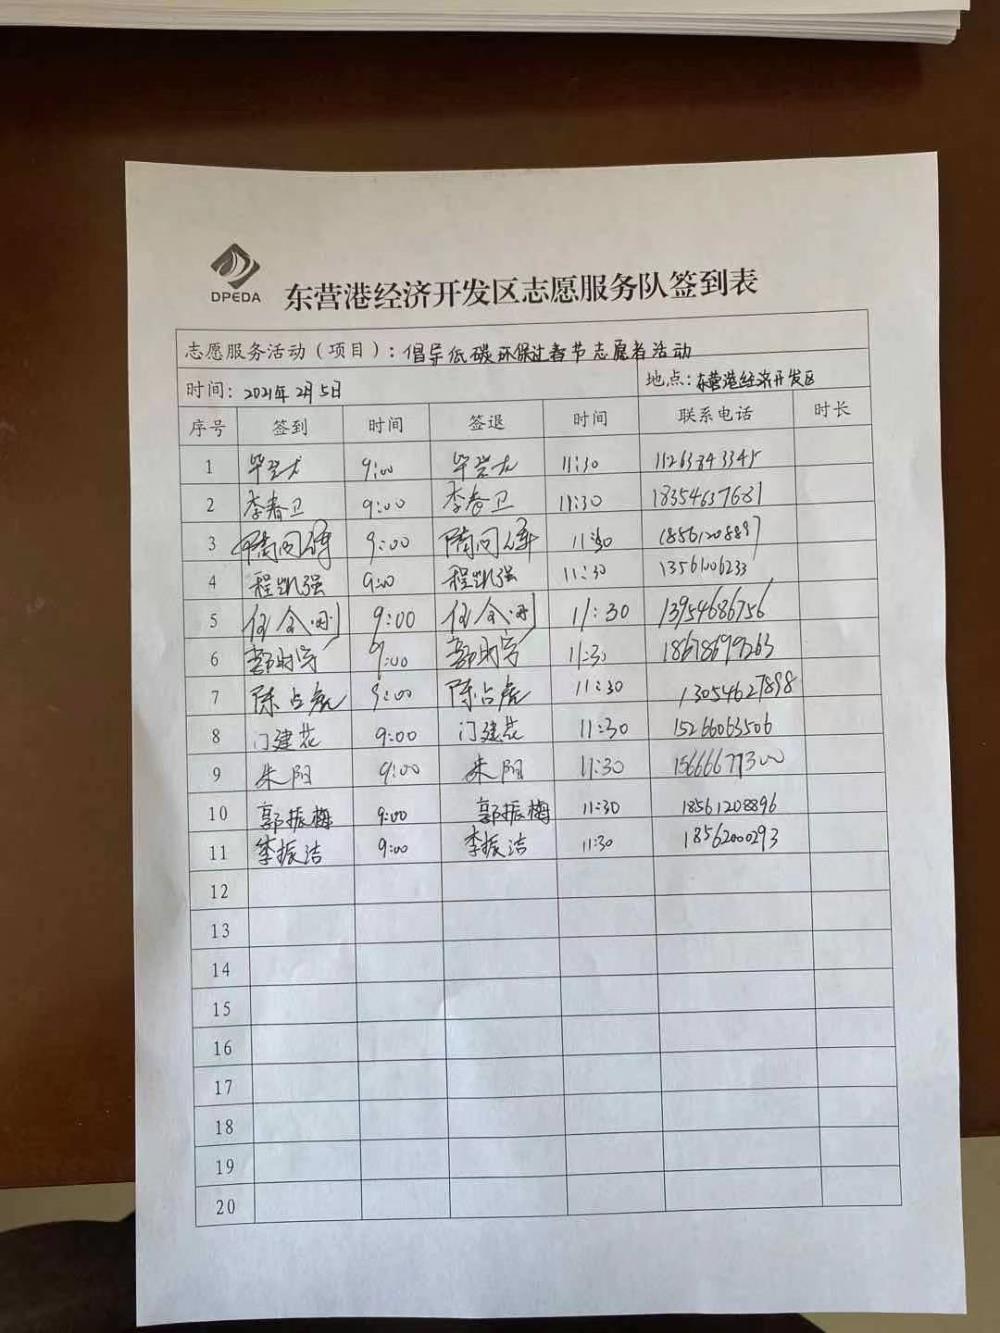 DPEDA
东营港经济开发区志愿服务队签到表
志愿服务活动（项目）：倡导低碳环保过春节志愿者活动
时间：2021年2月5日 地点：东营港经济开发区
序号 签到 时间 签退 时间 联系电话 时长
1 9:00 11:30
2 李春卫 9:00 李春卫 11:30 18354637681
3 9:00 11:30 18561208897
4 程凯强 9:00 程凯强 11:30 13561006233
5 9:00 11:30 13954686756
6 9:00 11:30 18678699263
7 陈占虎 9:00 陈占虎 11:30 13054627898
8 门建花 9:00 门建花 11:30 15266063506
9 朱阳 9:00 朱阳 11:30 15666677300
10 郭振梅 9:00 郭振梅 11:30 18561208896
11 李振洁 9:00 李振洁 11:30 18562000293
12
13
14
15
16
17
18
19
20